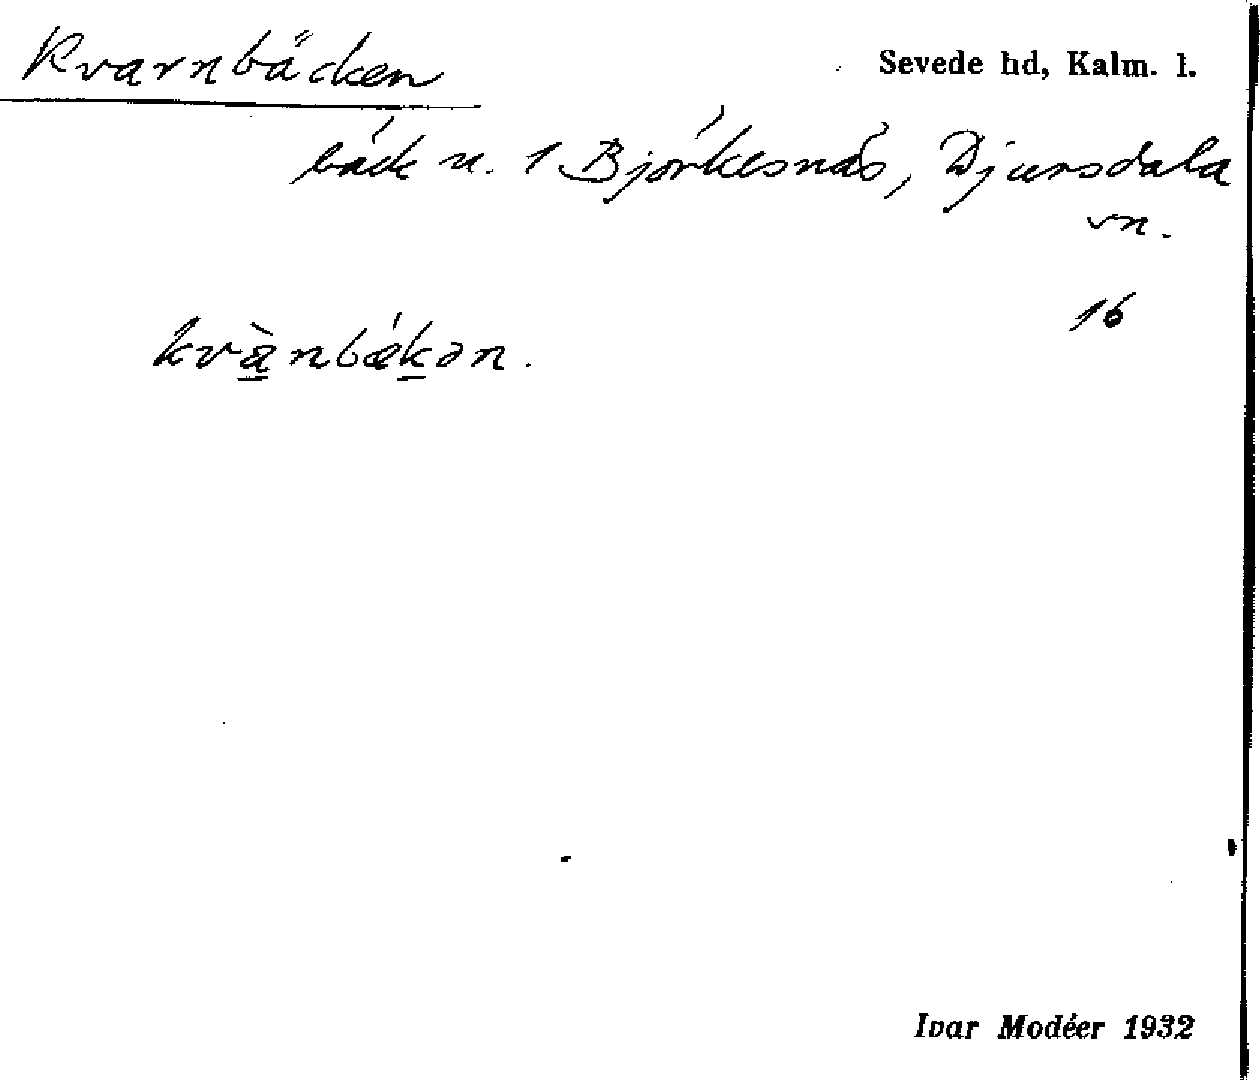 Kvarnbäcken
Sevede hd, Kalm. l.
bäck n. 1 Björkesnäs, Djursdala
sn.
16
kvànbǽkən.
Ivar Modéer 1932